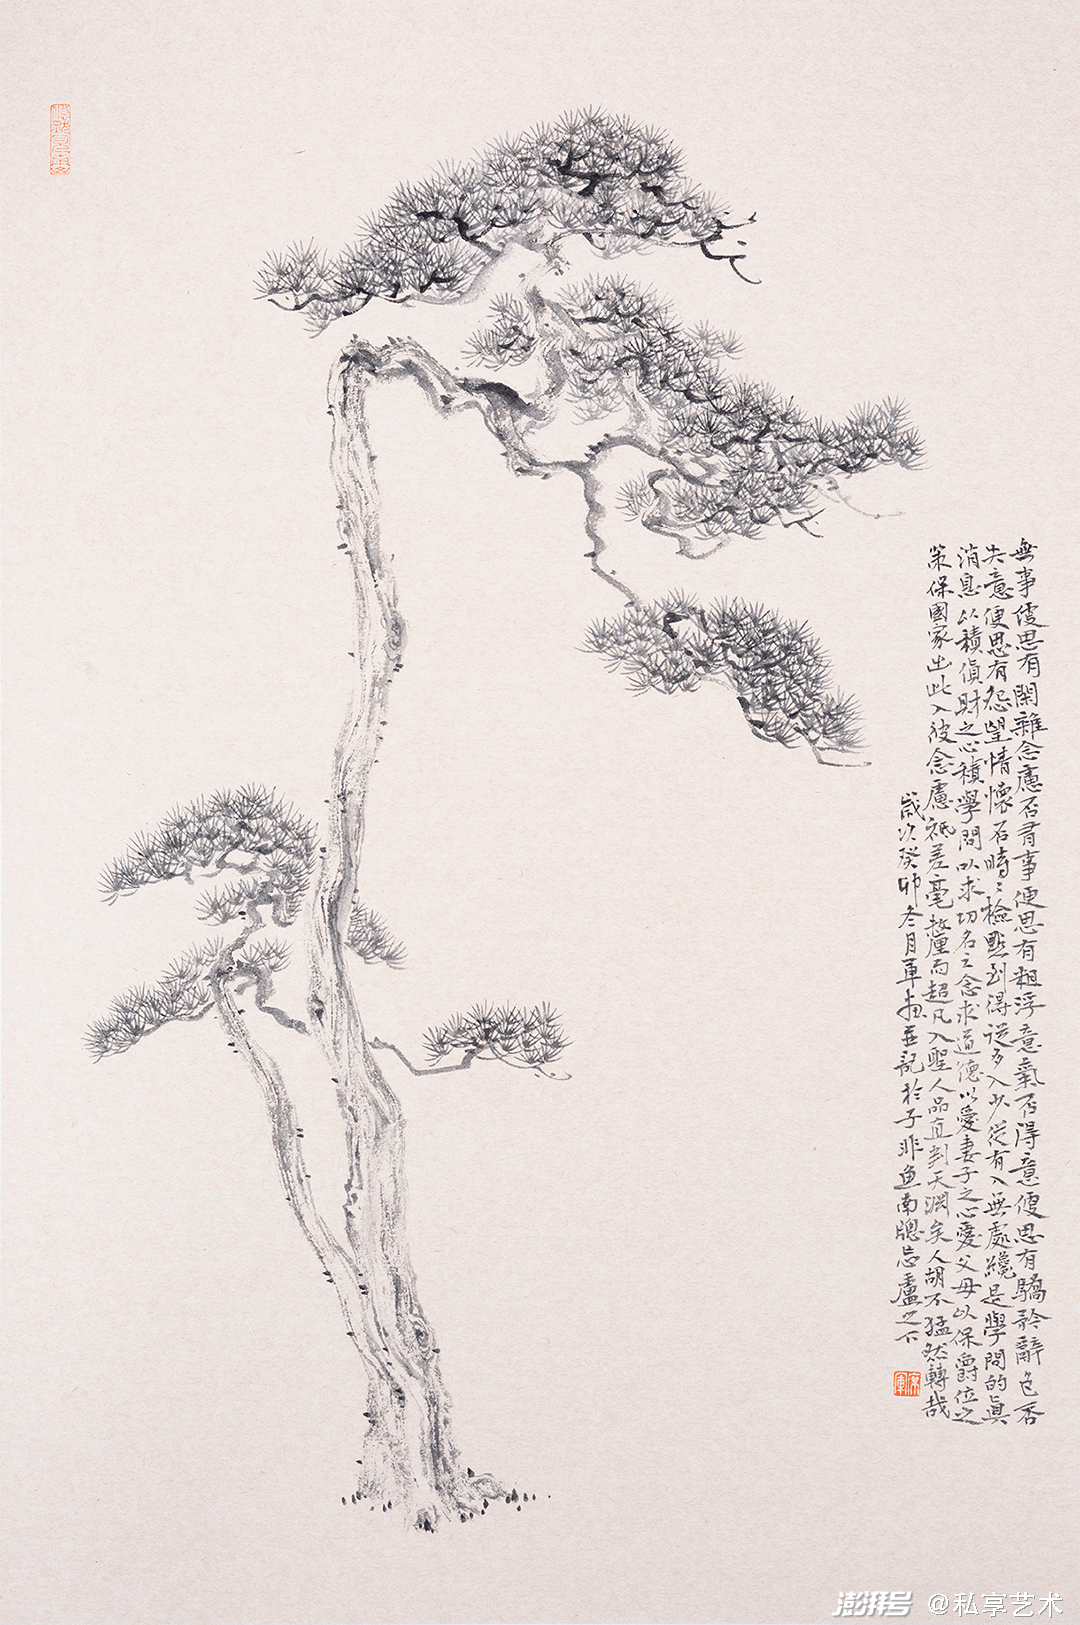 無事便思有閑雜念慮否有事便思有粗浮意氣否得意便思有驕矜辭色否
失意便思有怨望情懷否時〻檢點到得從多入少從有入無處纔是學問的眞
消息以積貨財之心積學問以求功名之念求道德以愛妻子之心愛父母以保爵位之
策保國家出此入彼念慮祇差毫釐而超凡入聖人品直判天淵矣人胡不猛然轉哉
歲次癸卯冬月軍畫並記於子非魚南牕忘盧之下
澎湃号 @私享艺术